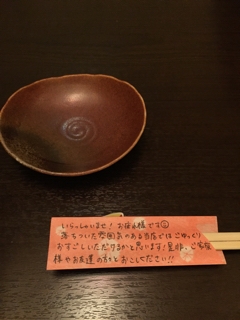 いらっしゃいませ！ お后様です☺
落ちついた雰囲気のある当店でごゆっくり
おすごしいただけるかと思います！是非、ご家族
様やお友達の方々とおこしください！！